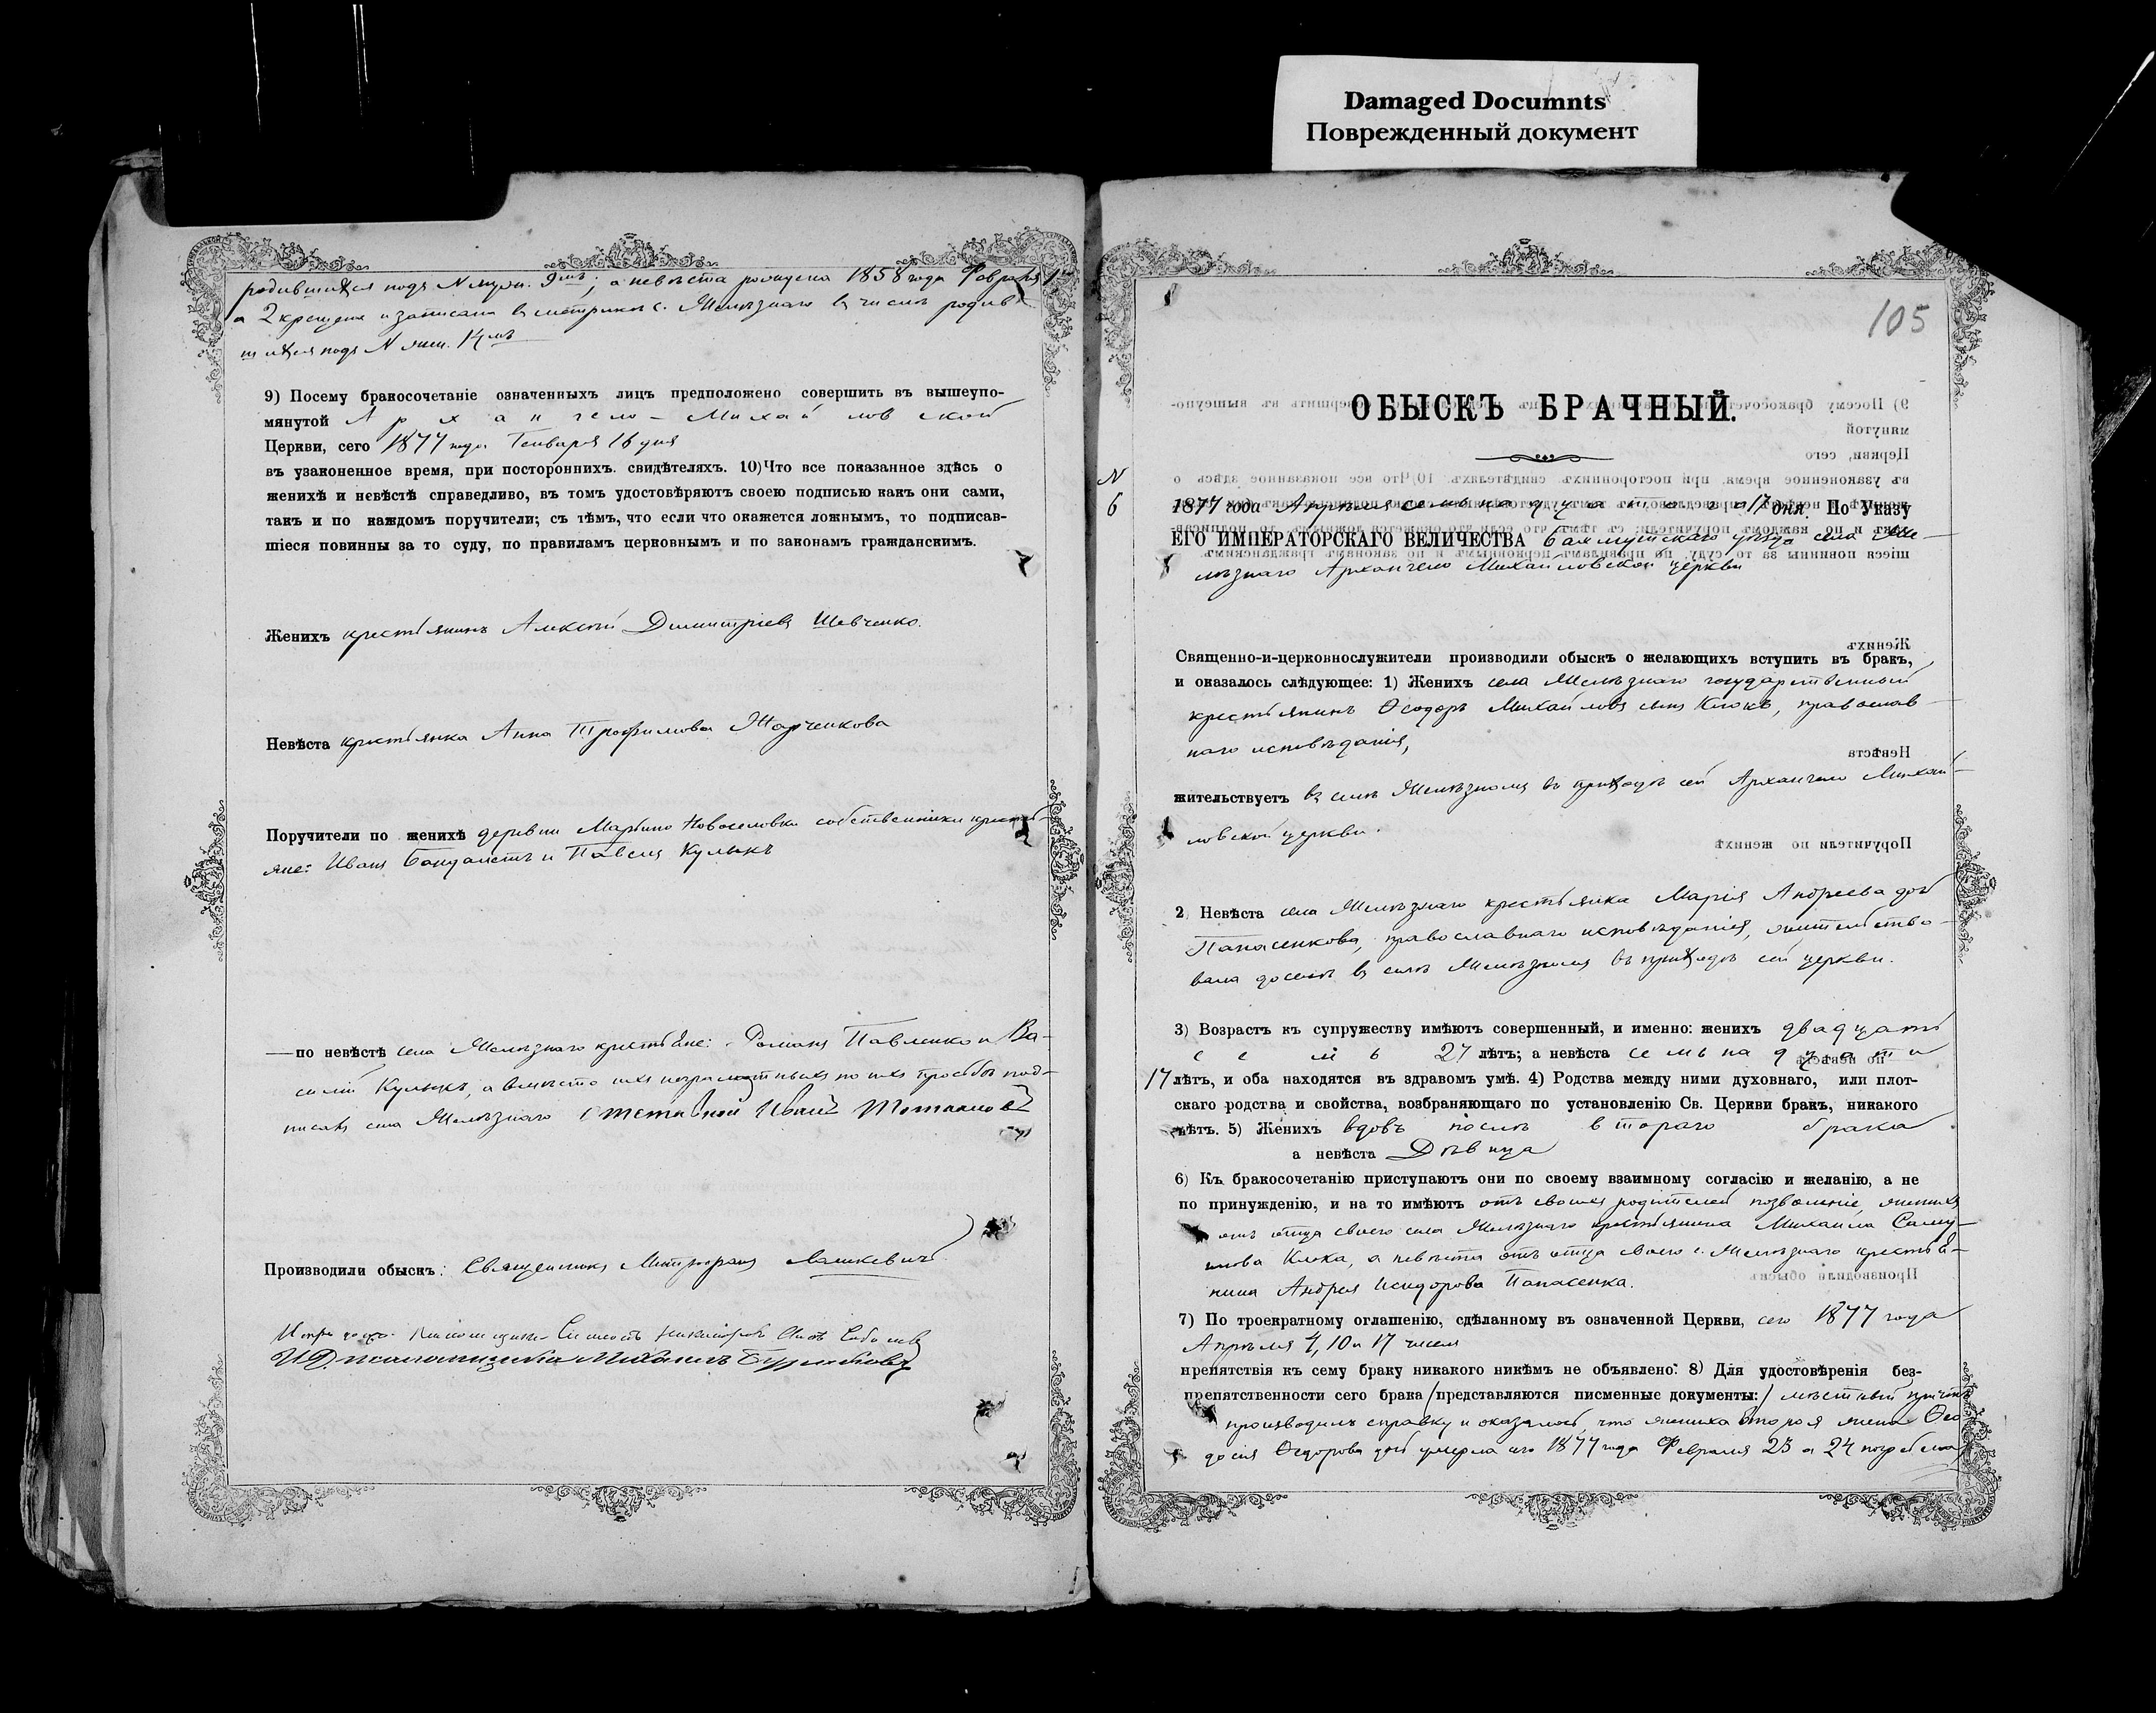 Damaged Documnts
Поврежденный документ
родившихся подъ N муж. 9мъ; а невѣста рождена 1858 года Февраля 1го
а 2 крещена и записана въ метрикѣ с. Желѣзнаго въ числѣ родив
шихся подъ N жен.
9) Посему бракосочетаніе означенныхъ лицъ предположено совершить въ вышеупо-
мянутой Архангело-Михайловской
Церкви, сего 1877 года Генваря 16 дня
въ узаконенное время, при постороннихъ. свидѣтеляхъ. 10) Что все показанное здѣсь о
женихѣ и невѣстѣ справедливо, въ томъ удостовѣряютъ своею подписью какъ они сами,
такъ и по каждомъ поручители; съ тѣмъ, что если что окажется ложнымъ, то подписав-
шіеся повинны за то суду, по правиламъ церковнымъ и по законамъ гражданскимъ.
Женихъ крестьянинъ Алексѣй Димитріевъ Шевченко.
Невѣста крестьянка Анна Трофимова Харченкова
Поручители по женихѣ деревни Марьино Новоселовки собственники крестья-
яне: Иванъ и Павелъ Кулыкъ
—по невѣстѣ села Желѣзнаго крестьяне: Романъ Павленко и Ва-
силій Кулыкъ, а вмѣсто ихъ неграмотныхъ по ихъ просьбѣ под-
писалъ села Желѣзнаго отставной
Производили обыскъ: Священникъ Митрофанъ
105
ОБЫСКЪ БРАЧНЫЙ.
N
6
1877 года Апрѣля семьнадцатаго 17 дня По Указу
ЕГО ИМПЕРАТОРСКАГО ВЕЛИЧЕСТВА Бахмутскаго уѣзда села Же-
лѣзнаго Архангело Михайловской церкви
Священно-и-церковнослужители производили обыскъ о желающихъ вступить въ бракъ,
и оказалось слѣдующее: 1) Женихъ села Желѣзнаго государственный
крестьянинъ Ѳеодоръ Михайловъ сынъ Клокъ, православ-
наго исповѣданія,
жительствуетъ въ селѣ Желѣзномъ въ приходѣ сей Архангело Михай-
ловской церкви.
2. Невѣста села Желѣзнаго крестьянка Марія Андреева дочь
Панасенкова, православнаго исповѣданія, жительство-
вала доселѣ въ селѣ Желѣзномъ въ приходѣ сей церкви.
3) Возрастъ къ супружеству имѣютъ совершенный, и именно: женихъ двадцати
семь 27 лѣтъ; а невѣста семьнадцати
17 лѣтъ, и оба находятся въ здравомъ умѣ. 4) Родства между ними духовнаго, или плот-
скаго родства и свойства, возбраняющаго по установленію Св. Церкви бракъ, никакого
нѣтъ. 5) Женихъ вдовъ послѣ втораго брака
а невѣста Дѣвица
6) Къ бракосочетанію приступаютъ они по своему взаимному согласію и желанію, а не
по принужденію, и на то имѣютъ отъ своихъ родителей позволеніе, женихъ
отъ отца своего села Желѣзнаго крестьянина Михаила Саму-
илова Клока, а невѣста отъ отца своего с. Желѣзнаго крестья-
нина Андрея Исидорова Панасенка.
7) По троекратному оглашенію, сдѣланному въ означенной Церкви, сего 1877 года
Апрѣля 4, 10 и 17 чиселъ
препятствія къ сему браку никакого никѣмъ не объявлено: 8) Для удостовѣренія без-
препятственности сего брака /представляются писменные документы:/ мѣстный причтъ
производилъ справку и оказалось, что жениха вторая жена Ѳео
досія Ѳедорова дочь умерла сего 1877 года Февраля 23 а 24 погребена